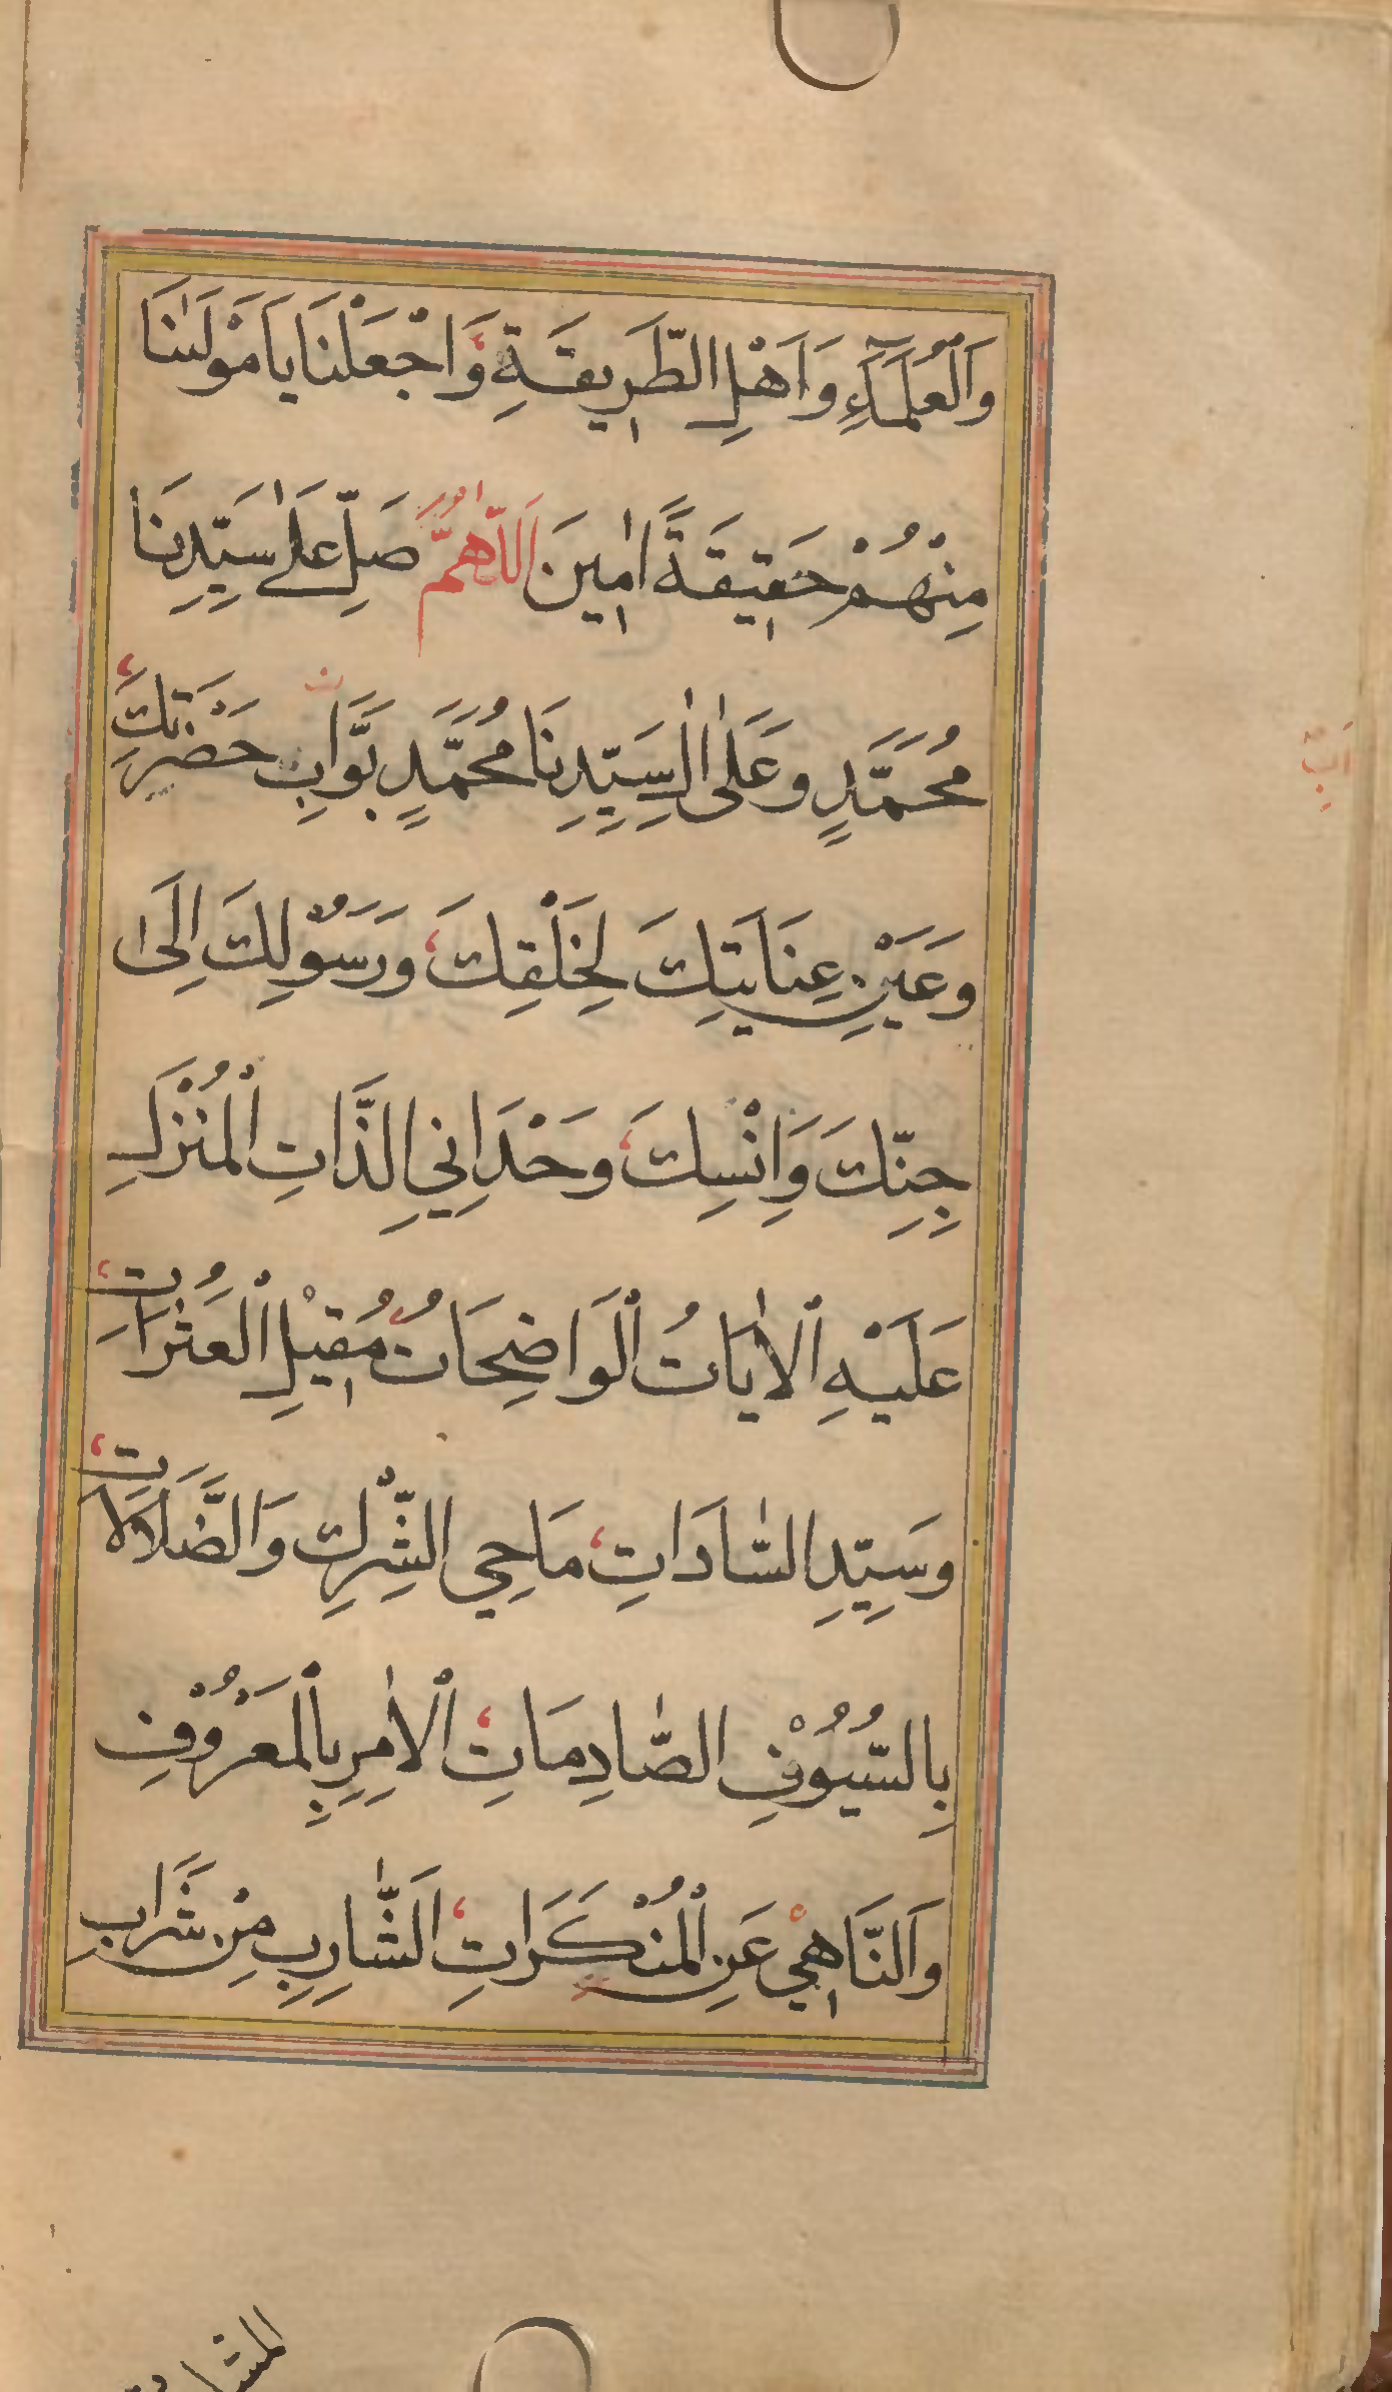 وَالْعُلَمَآءِ وَاَهْلِ الطَّرِيقَةِ وَاجْعَلْنَا يَا مَوْلٰىنَا
مِنْهُمْ حَقِيقَةً اٰمِينَ اَللّٰهُمَّ صَلِّ عَلٰى سَيِّدِنَا
مُحَمَّدٍ وَعَلٰى اٰلِ سَيِّدِنَا مُحَمَّدٍ بَوَّابِ حَضْرَتِكَ
وَعَيْنِ عِنَايَتِكَ لِخَلْقِكَ وَرَسُوْلِكَ اِلٰى
جِنِّكَ وَاِنْسِكَ وَحْدَانِيِّ الذَّاتِ الْمُنْزَلِ
عَلَيْهِ الْاٰيَاتُ الْوَاضِحَاتُ مُقِيْلِ الْعَثَرَاتِ
وَسَيِّدِ السَّادَاتِ مَاحِي الشِّرْكِ وَالضَّلَالَاتِ
بِالسُّيُوْفِ الصَّارِمَاتِ الْاٰمِرِ بِالْمَعْرُوْفِ
وَالنَّاهِيْ عَنِ الْمُنْكَرَاتِ اَلشَّارِبِ مِنْ شَرَابِ